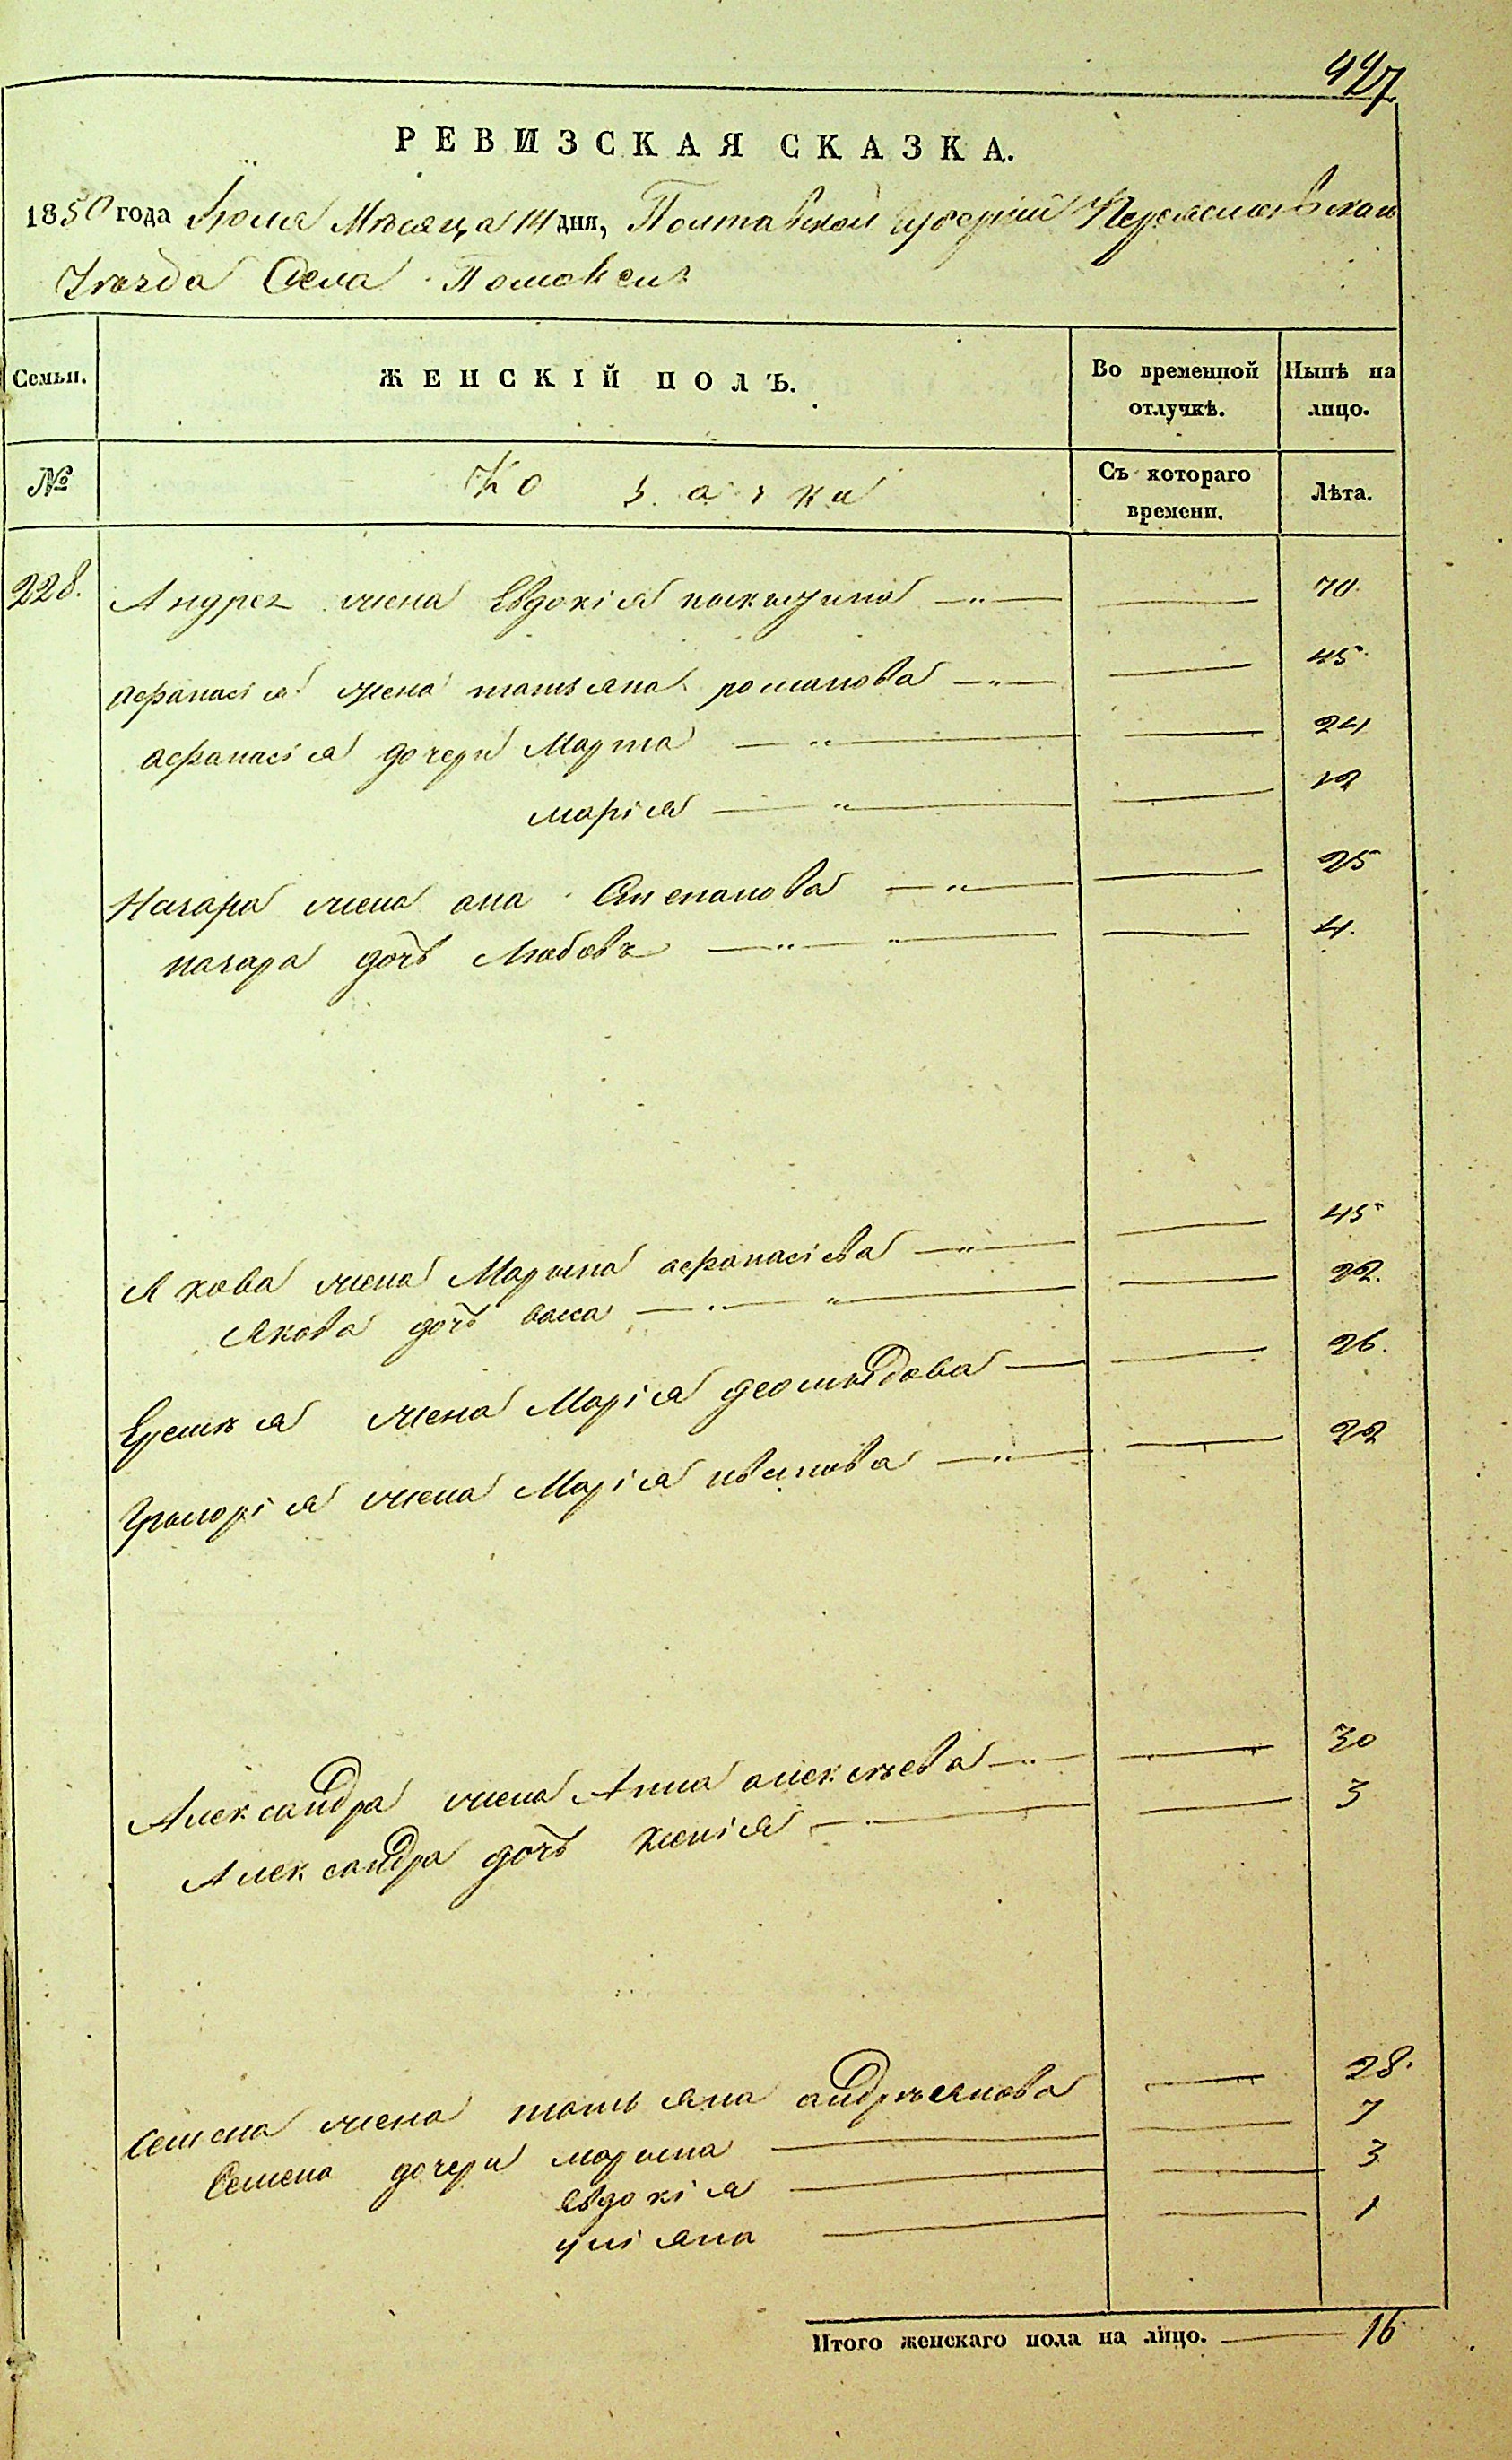 447
РЕВИЗСКАЯ СКАЗКА.
1850 года Июля Месяца 14 дня, Полтавской Губернии Переяславскаго
Уезда Села
Семьи. ЖЕНСКІЙ ПОЛЪ. Во временной отлучкѣ. Нынѣ на лицо.
№ Козака Съ котораго времени. Лѣта.
228. Андрея жена Евдокія 70.
Афанасія жена татьяна романова 45.
афанасія дочери Марта 24
марія 12
Назара жена ана Степанова 25
назара дочь Любовь 4.
Якова жена Марина афанасіева 45
Якова дочь 22.
Еремія жена Марія деомидова 26.
Григорія жена Марія иванова 22
Александра жена Анна алексѣева 30
Александра дочь ксенія 3
Семена жена татьяна андрѣянова 28.
Семена дочери марина 7
евдокія 3
уліяна 1
Итого женскаго пола на лицо. 16